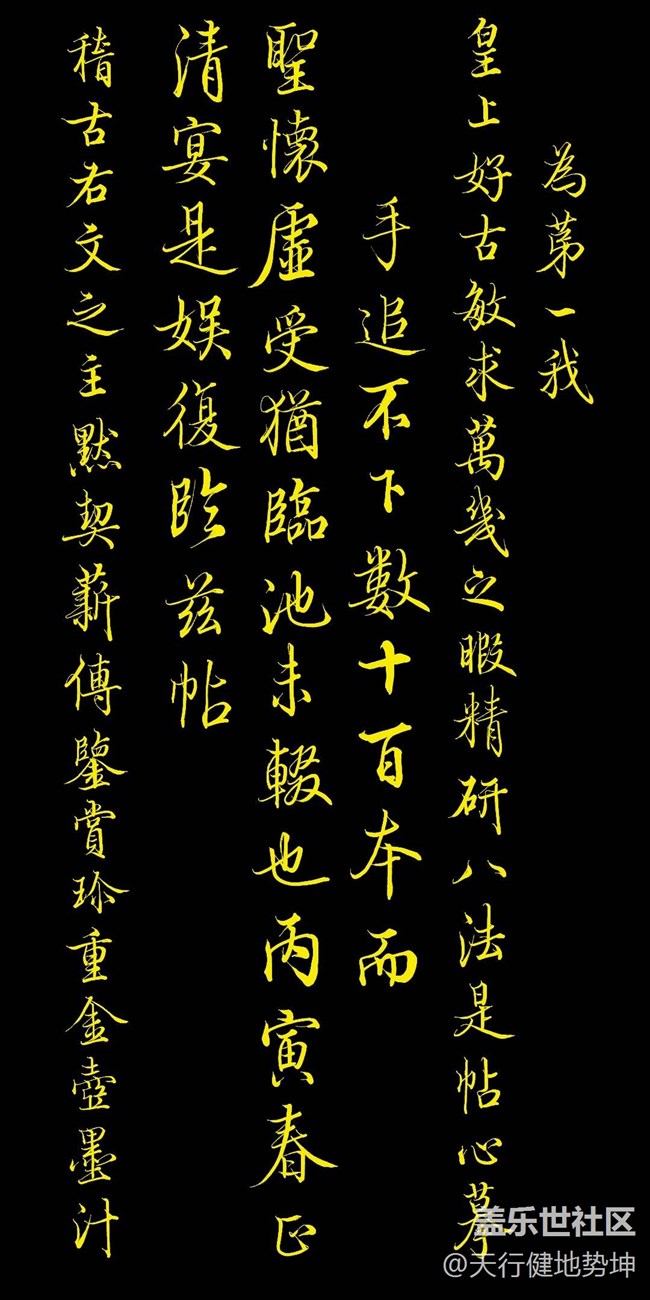 為苐一我
皇上好古敏求萬幾之暇精研八法是帖心摹
手追不下數十百本而
聖懷虛受猶臨池未輟也丙寅春正
清宴是娱復臨茲帖
稽古右文之主默契薪傳鑒賞珎重金壺墨汁
盖乐世社区
@天行健地势坤